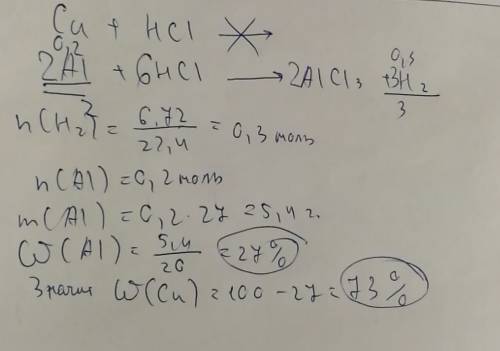 Cu + HCl ↛
0,2 0,3
2Al + 6HCl → 2AlCl3 + 3H2
2 3
n(H2) = 6,72 / 22,4 = 0,3 моль
n(Al) = 0,2 моль
m(Al) = 0,2 · 27 = 5,4 г.
ω(Al) = 5,4 / 20 = 27%
Значит ω(Cu) = 100 - 27 = 73%